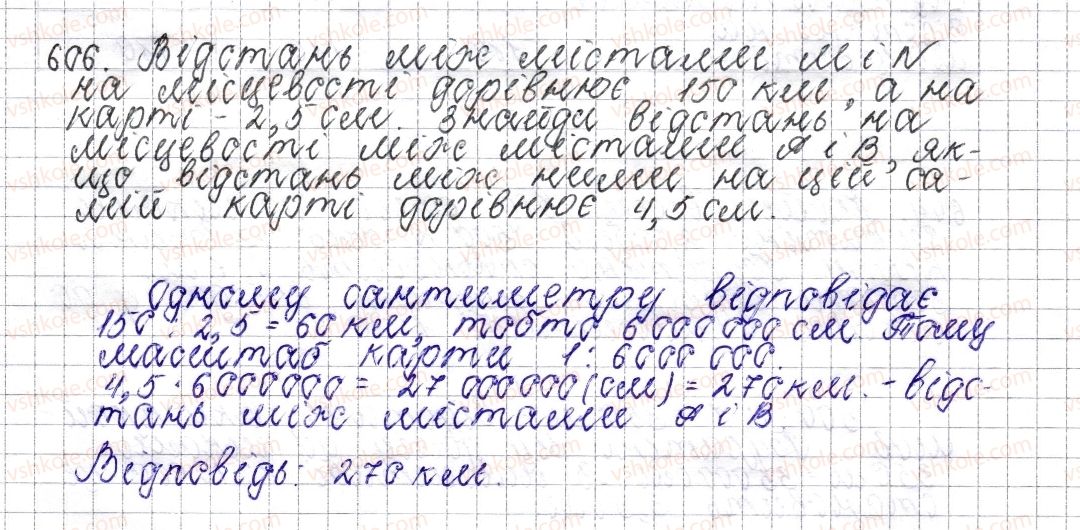 606. Відстань між містами M і N
на місцевості дорівнює 150 км, а на
карті - 2,5 см. Знайди відстань на
місцевості між містами A і B, як-
що відстань між ними на цій са-
мій карті дорівнює 4,5 см.
Одному сантиметру відповідає
150 : 2,5 = 60 км, тобто 6 000 000 см. Тому
масштаб карти 1 : 6000 000.
4,5 · 6000000 = 27 000000 (см) = 270 км. - відс-
тань між містами A і B
Відповідь: 270 км.